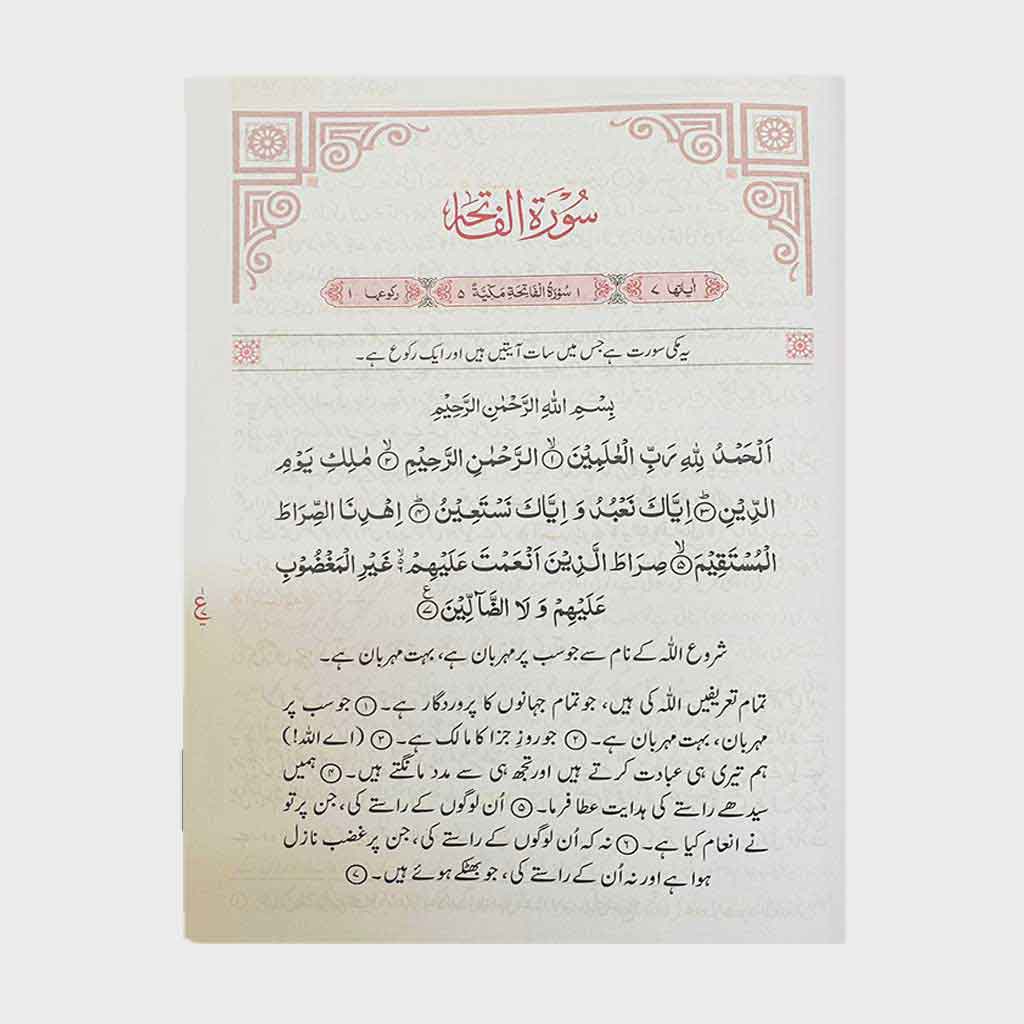 سُوْرَةُ الْفَاتِحَةِ
اٰیاتها ۷ ۱ سُوْرَةُ الْفَاتِحَةِ مَكِّيَّةٌ ۵ رکوعها ۱
یہ مکی سورت ہے جس میں سات آیتیں ہیں اور ایک رکوع ہے۔
بِسْمِ اللّٰهِ الرَّحْمٰنِ الرَّحِيْمِ
اَلْحَمْدُ لِلّٰهِ رَبِّ الْعٰلَمِيْنَ ۙ﴿۱﴾ الرَّحْمٰنِ الرَّحِيْمِ ۙ﴿۲﴾ مٰلِكِ يَوْمِ
الدِّيْنِ ؕ﴿۳﴾ اِيَّاكَ نَعْبُدُ وَ اِيَّاكَ نَسْتَعِيْنُ ؕ﴿۴﴾ اِهْدِنَا الصِّرَاطَ
الْمُسْتَقِيْمَ ۙ﴿۵﴾ صِرَاطَ الَّذِيْنَ اَنْعَمْتَ عَلَيْهِمْ ۙ۬ غَيْرِ الْمَغْضُوْبِ
عَلَيْهِمْ وَ لَا الضَّآلِّيْنَ ﴿۷﴾
شروع اللہ کے نام سے جو سب پر مہربان ہے، بہت مہربان ہے۔
تمام تعریفیں اللہ کی ہیں، جو تمام جہانوں کا پروردگار ہے۔ ﴿۱﴾ جو سب پر
مہربان، بہت مہربان ہے۔ ﴿۲﴾ جو روزِ جزا کا مالک ہے۔ ﴿۳﴾ (اے اللہ!)
ہم تیری ہی عبادت کرتے ہیں اور تجھ ہی سے مدد مانگتے ہیں۔ ﴿۴﴾ ہمیں
سیدھے راستے کی ہدایت عطا فرما۔ ﴿۵﴾ اُن لوگوں کے راستے کی، جن پر تو
نے انعام کیا ہے۔ ﴿۶﴾ نہ کہ اُن لوگوں کے راستے کی، جن پر غضب نازل
ہوا ہے اور نہ اُن کے راستے کی، جو بھٹکے ہوئے ہیں۔ ﴿۷﴾